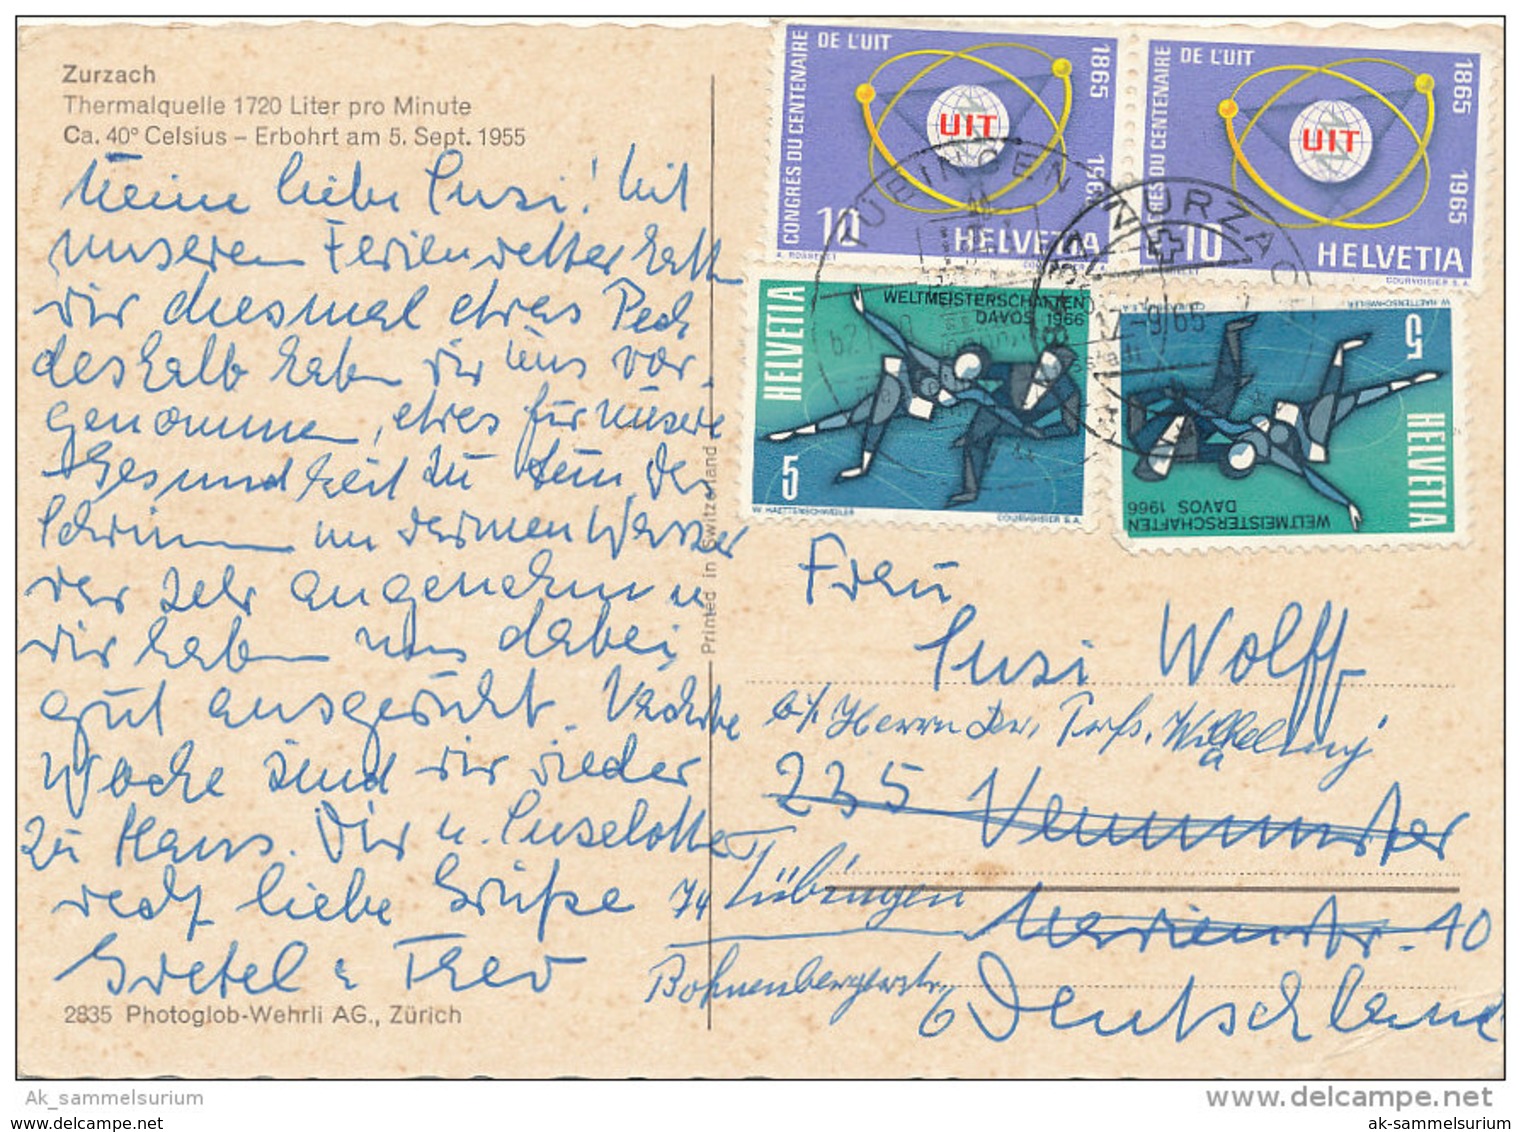 Zurzach
Thermalquelle 1720 Liter pro Minute
Ca. 40° Celsius – Erbohrt am 5. Sept. 1955
Meine liebe Susi! Mit
unserem Ferienwetter hatten
wir diesmal etwas Pech
deshalb haben wir uns vor-
genommen, etwas für unsere
Gesundheit zu tun, das
Schwimmen im warmen Wasser
war sehr angenehm u
wir haben uns dabei
gut ausgeruht. Nächste
Woche sind wir wieder
zu Haus. Dir u. Luselotte
recht liebe Grüße
Gretel u Theo
2835 Photoglob-Wehrli AG., Zürich
Printed in Switzerland
CONGRÈS DU CENTENAIRE
DE L'UIT
1865
1965
UIT
10
HELVETIA
COURVOISIER S.A.
CONGRÈS DU CENTENAIRE
DE L'UIT
1865
1965
UIT
10
HELVETIA
COURVOISIER S.A.
HELVETIA
WELTMEISTERSCHAFTEN
DAVOS 1966
5
W. HAETTENSCHWEILER
COURVOISIER S.A.
HELVETIA
WELTMEISTERSCHAFTEN
DAVOS 1966
5
W. HAETTENSCHWEILER
TÜBINGEN
ZURZACH
17-9 65
Frau
Susi Wolff
b/. Herrn Dr. Prof.
235 Neumünster
74 Tübingen
Marienstr. 10
Bohnenbergerstr.
6
Deutschland
Ak_sammelsurium
www.delcampe.net
ak-sammelsurium.com
ak-sammelsurium